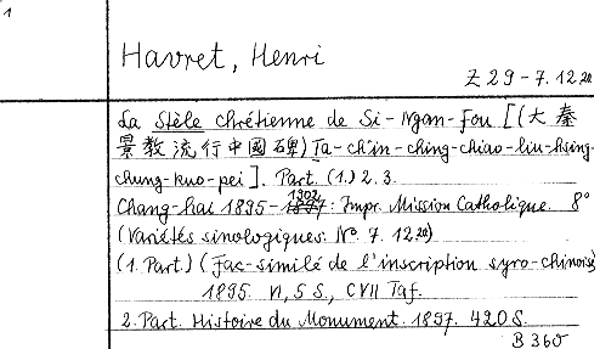 1
Havret, Henri
Z 29-7.12.20
La Stèle chrétienne de Si-Ngan-Fou [(大秦
景教流行中國碑) Ta-ch'in-ching-chiao-liu-hsing-
chung-kuo-pei]. Part. (1.) 2. 3.
Chang-hai 1895-1902: Impr. Mission Catholique. 8°
(Variétés sinologiques. N° 7. 12. 20)
(1. Part.) (Fac-similé de l'inscription syro-chinoise)
1895. VI, 5 S., CVII Taf.
2. Part. Histoire du Monument. 1897. 420 S.
B 360